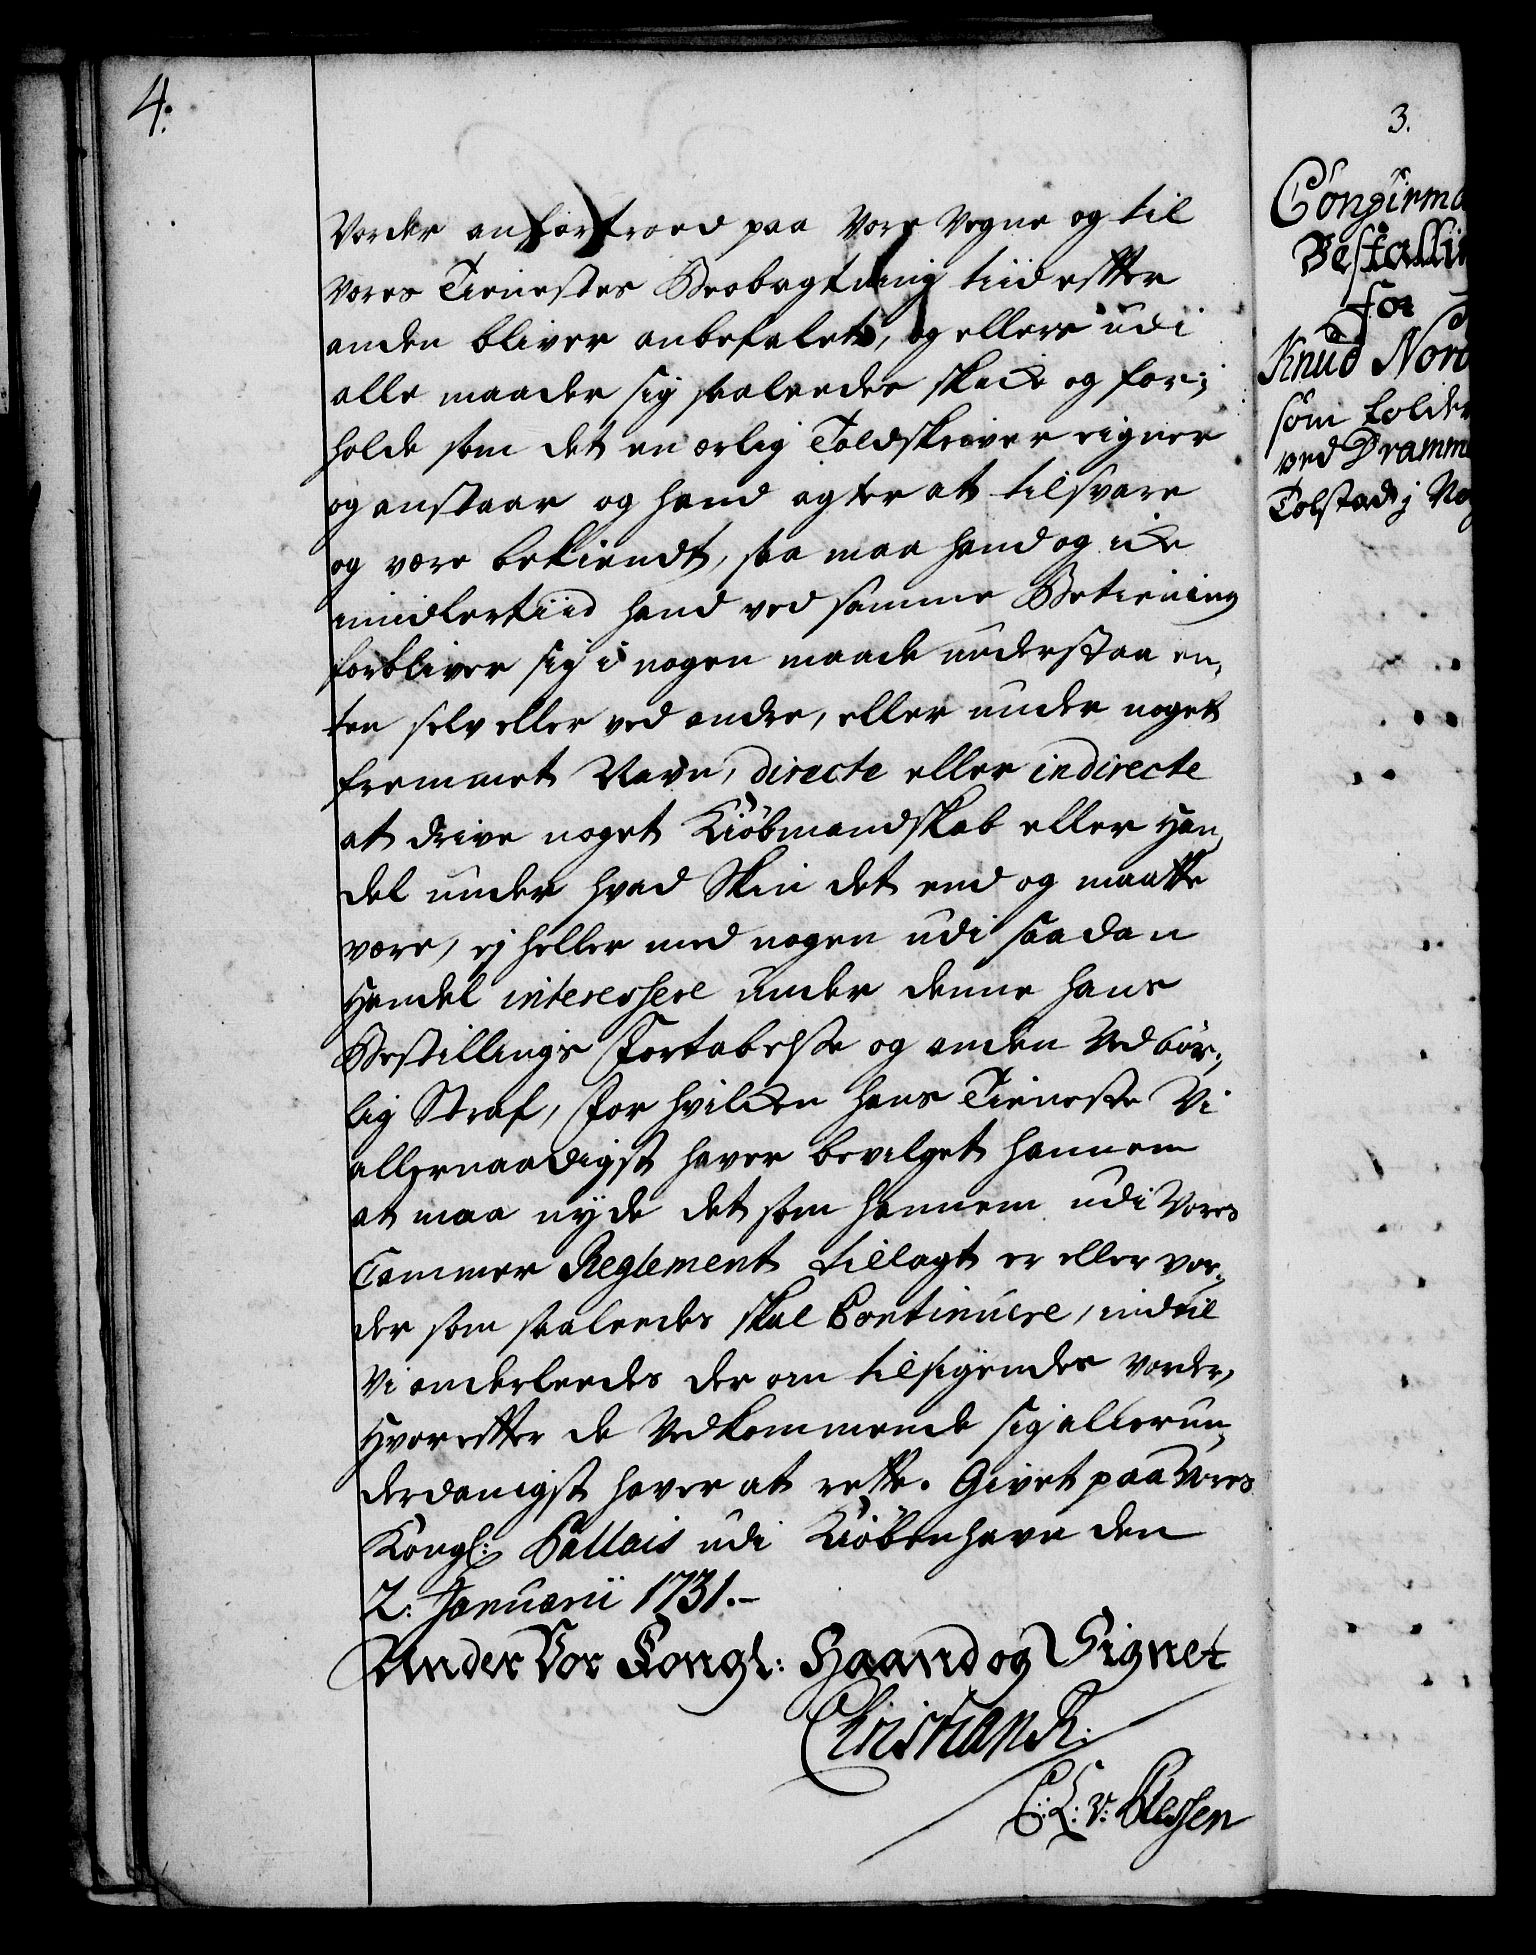 4.
Vorder anfortroed paa Vore Vegne og til
Vores Tienestes Beobagtning tiid efter
anden bliver anbefalet, og ellers udi
alle maader sig saaleedes skicke og for-
holde som det en ærlig Toldskriver eigner
og anstaar og hand agter at tilsvare
og være bekiendt, saa maa hand og icke
imidlertiid hand ved samme Betiening
forbliver sig i nogen maade understaa en-
ten selv eller ved andre, eller under noget
fremmet Navn, directe eller indirecte
at drive noget Kiöbmandskab eller Han-
del under hvad Skin det end og maatte
være, ej heller med nogen udi saadan
Handel interessere under denne hans
Bestillings Fortabelse og anden Vedbör-
lig Straf, For hvilcken hans Tieneste Vi
allernaadigst haver bevilget hannem
at maa nÿde det som hannem udi Vores
Cammer Reglement tillagt er eller vor-
der som saaledes skal Continuere, indtil
Vi anderleedes der om tilsigendes vorder,
Hvorefter de Vedkommende sig allerun-
derdanigst haver at rette. Givet paa Vores
Kongl: Pallais udi Kiöbenhavn den
2. Januarii 1731.-
Under Vor Kongl: Haand og Signet
Christian R.
C: L: v: Plessen
3.
Confirma
Bestallin
for
Knud Nord
som Tolder
ved Dramm
Tolsted j No